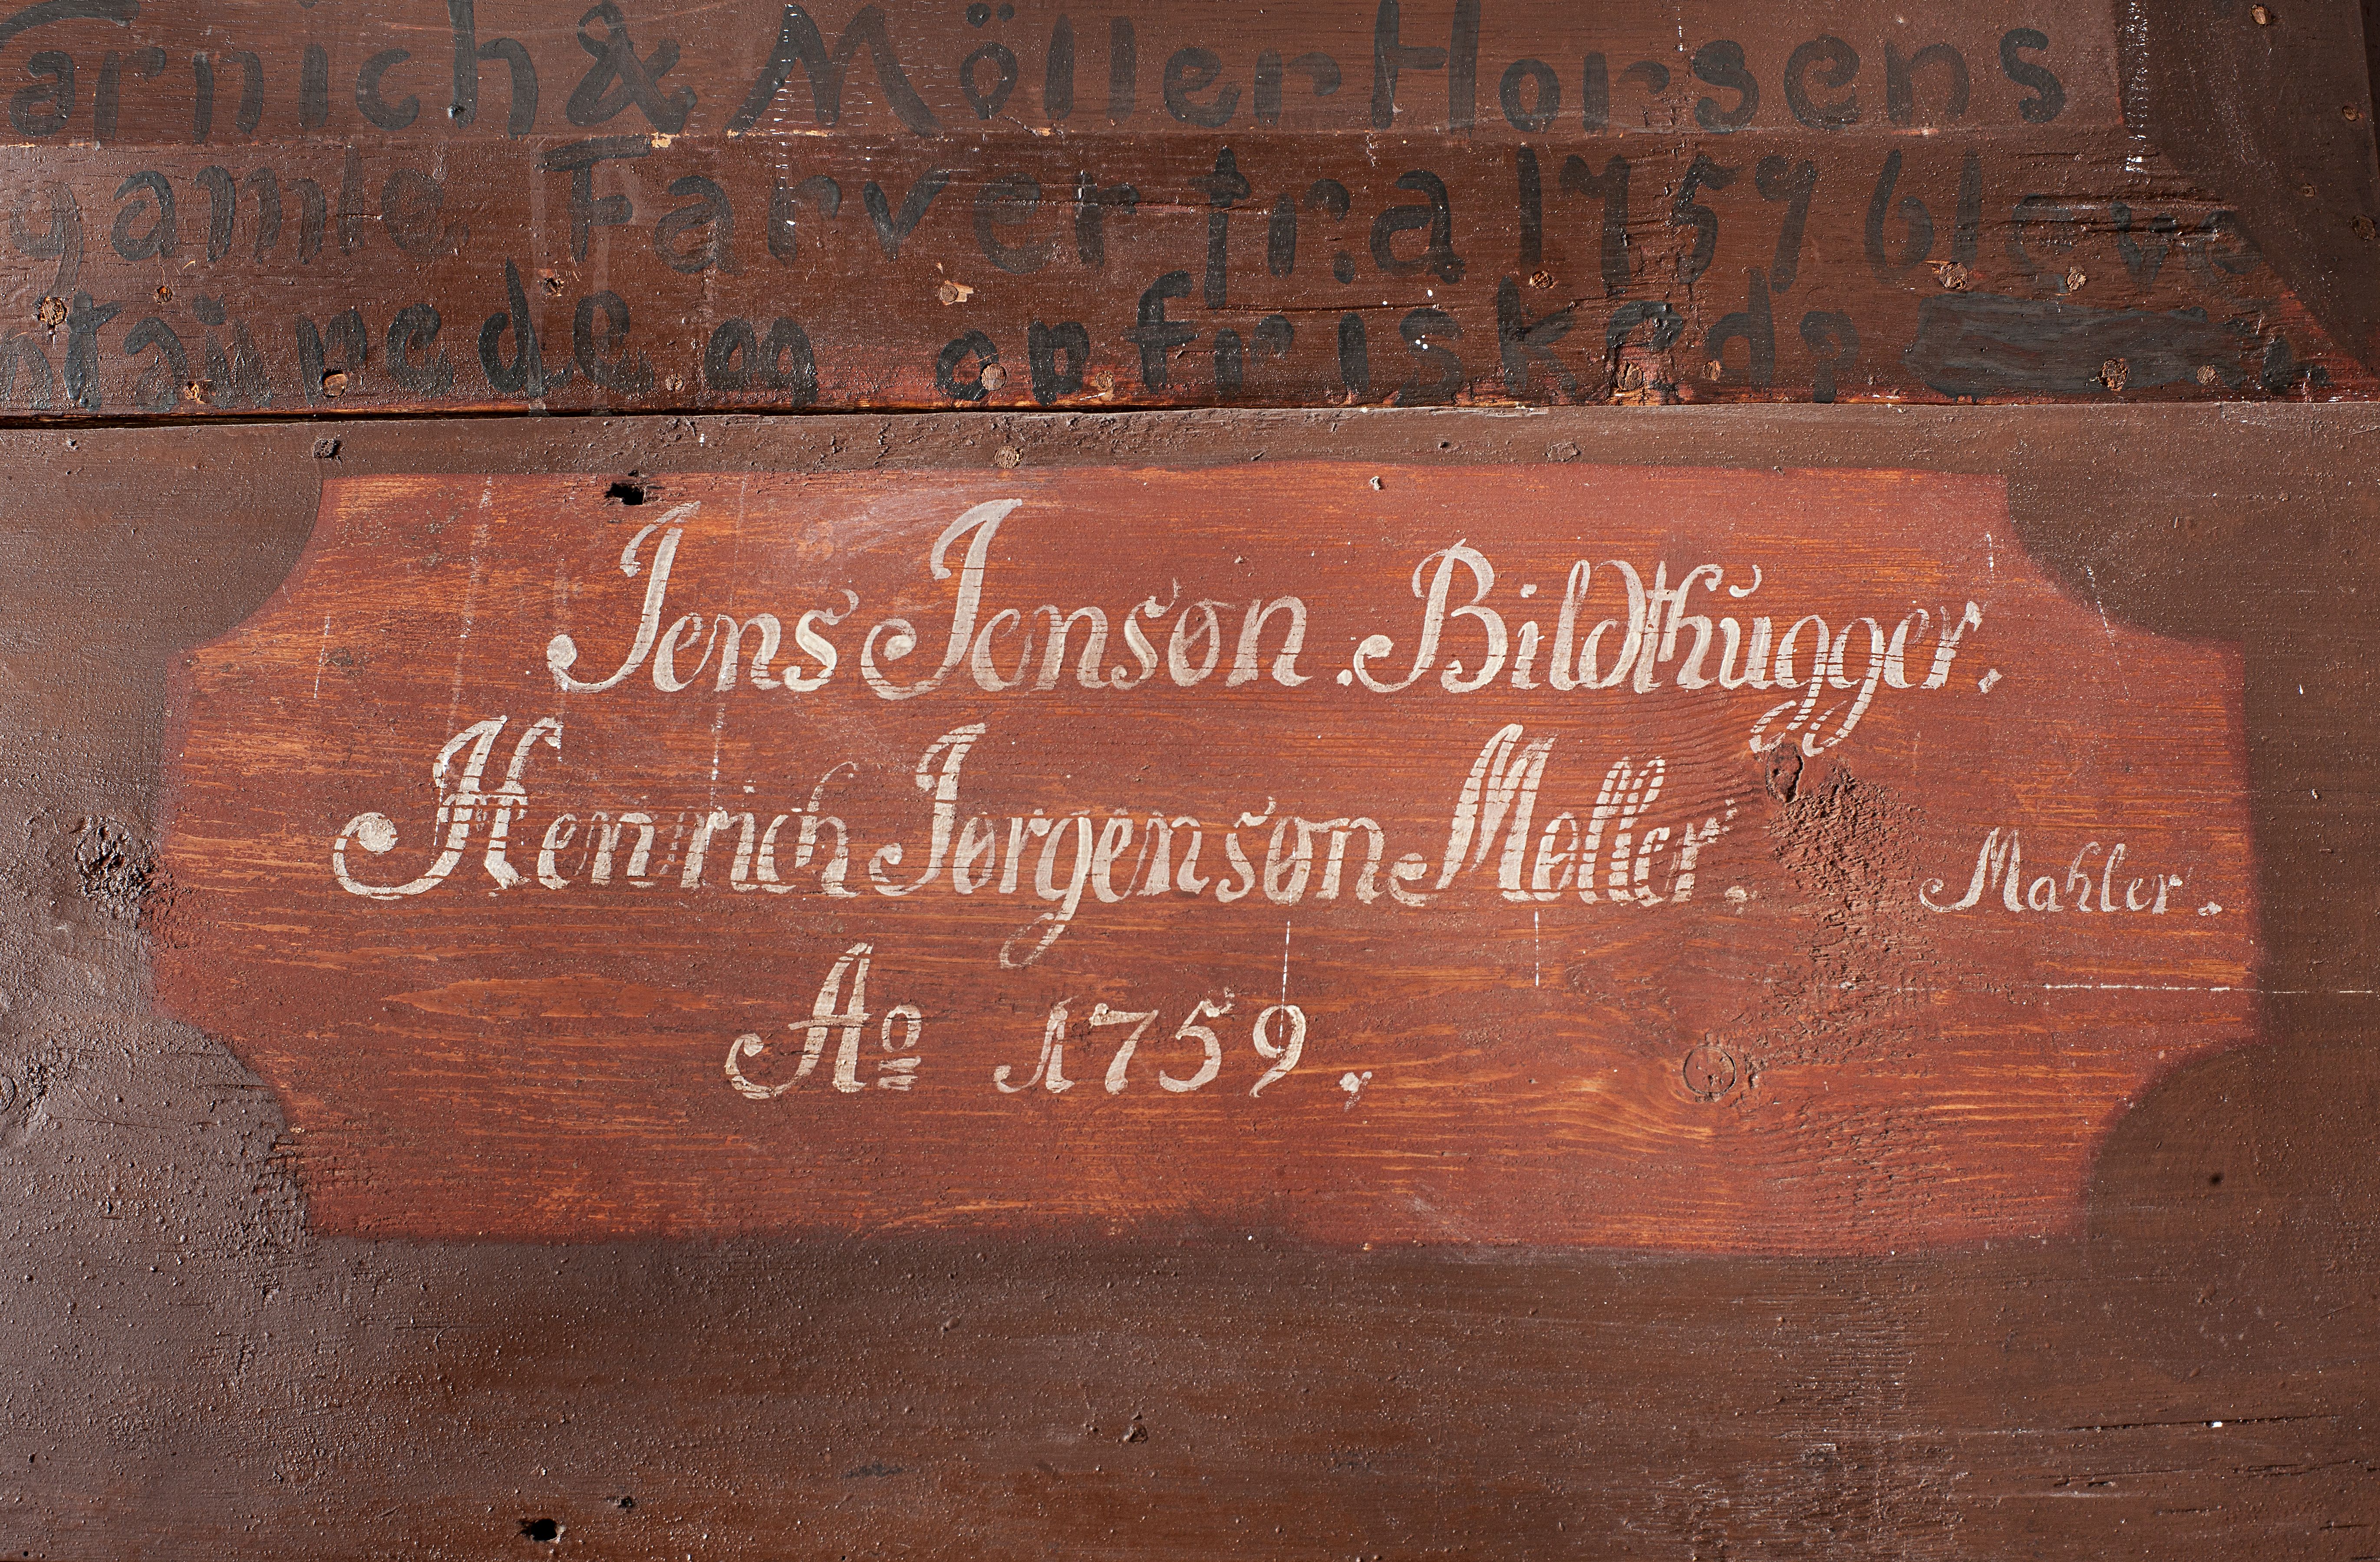 & Möller Horsens
gamle Farver fra 1759 blev
og opfrisked
Jens Jenson. Bildthŭgger.
Henrich Jørgenson Møller. Mahler.
Ao 1759.